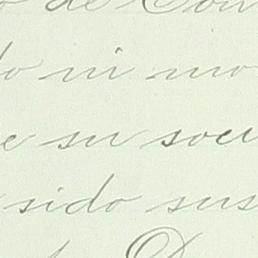 o de Con
do ni mo
e su soce
sido sus